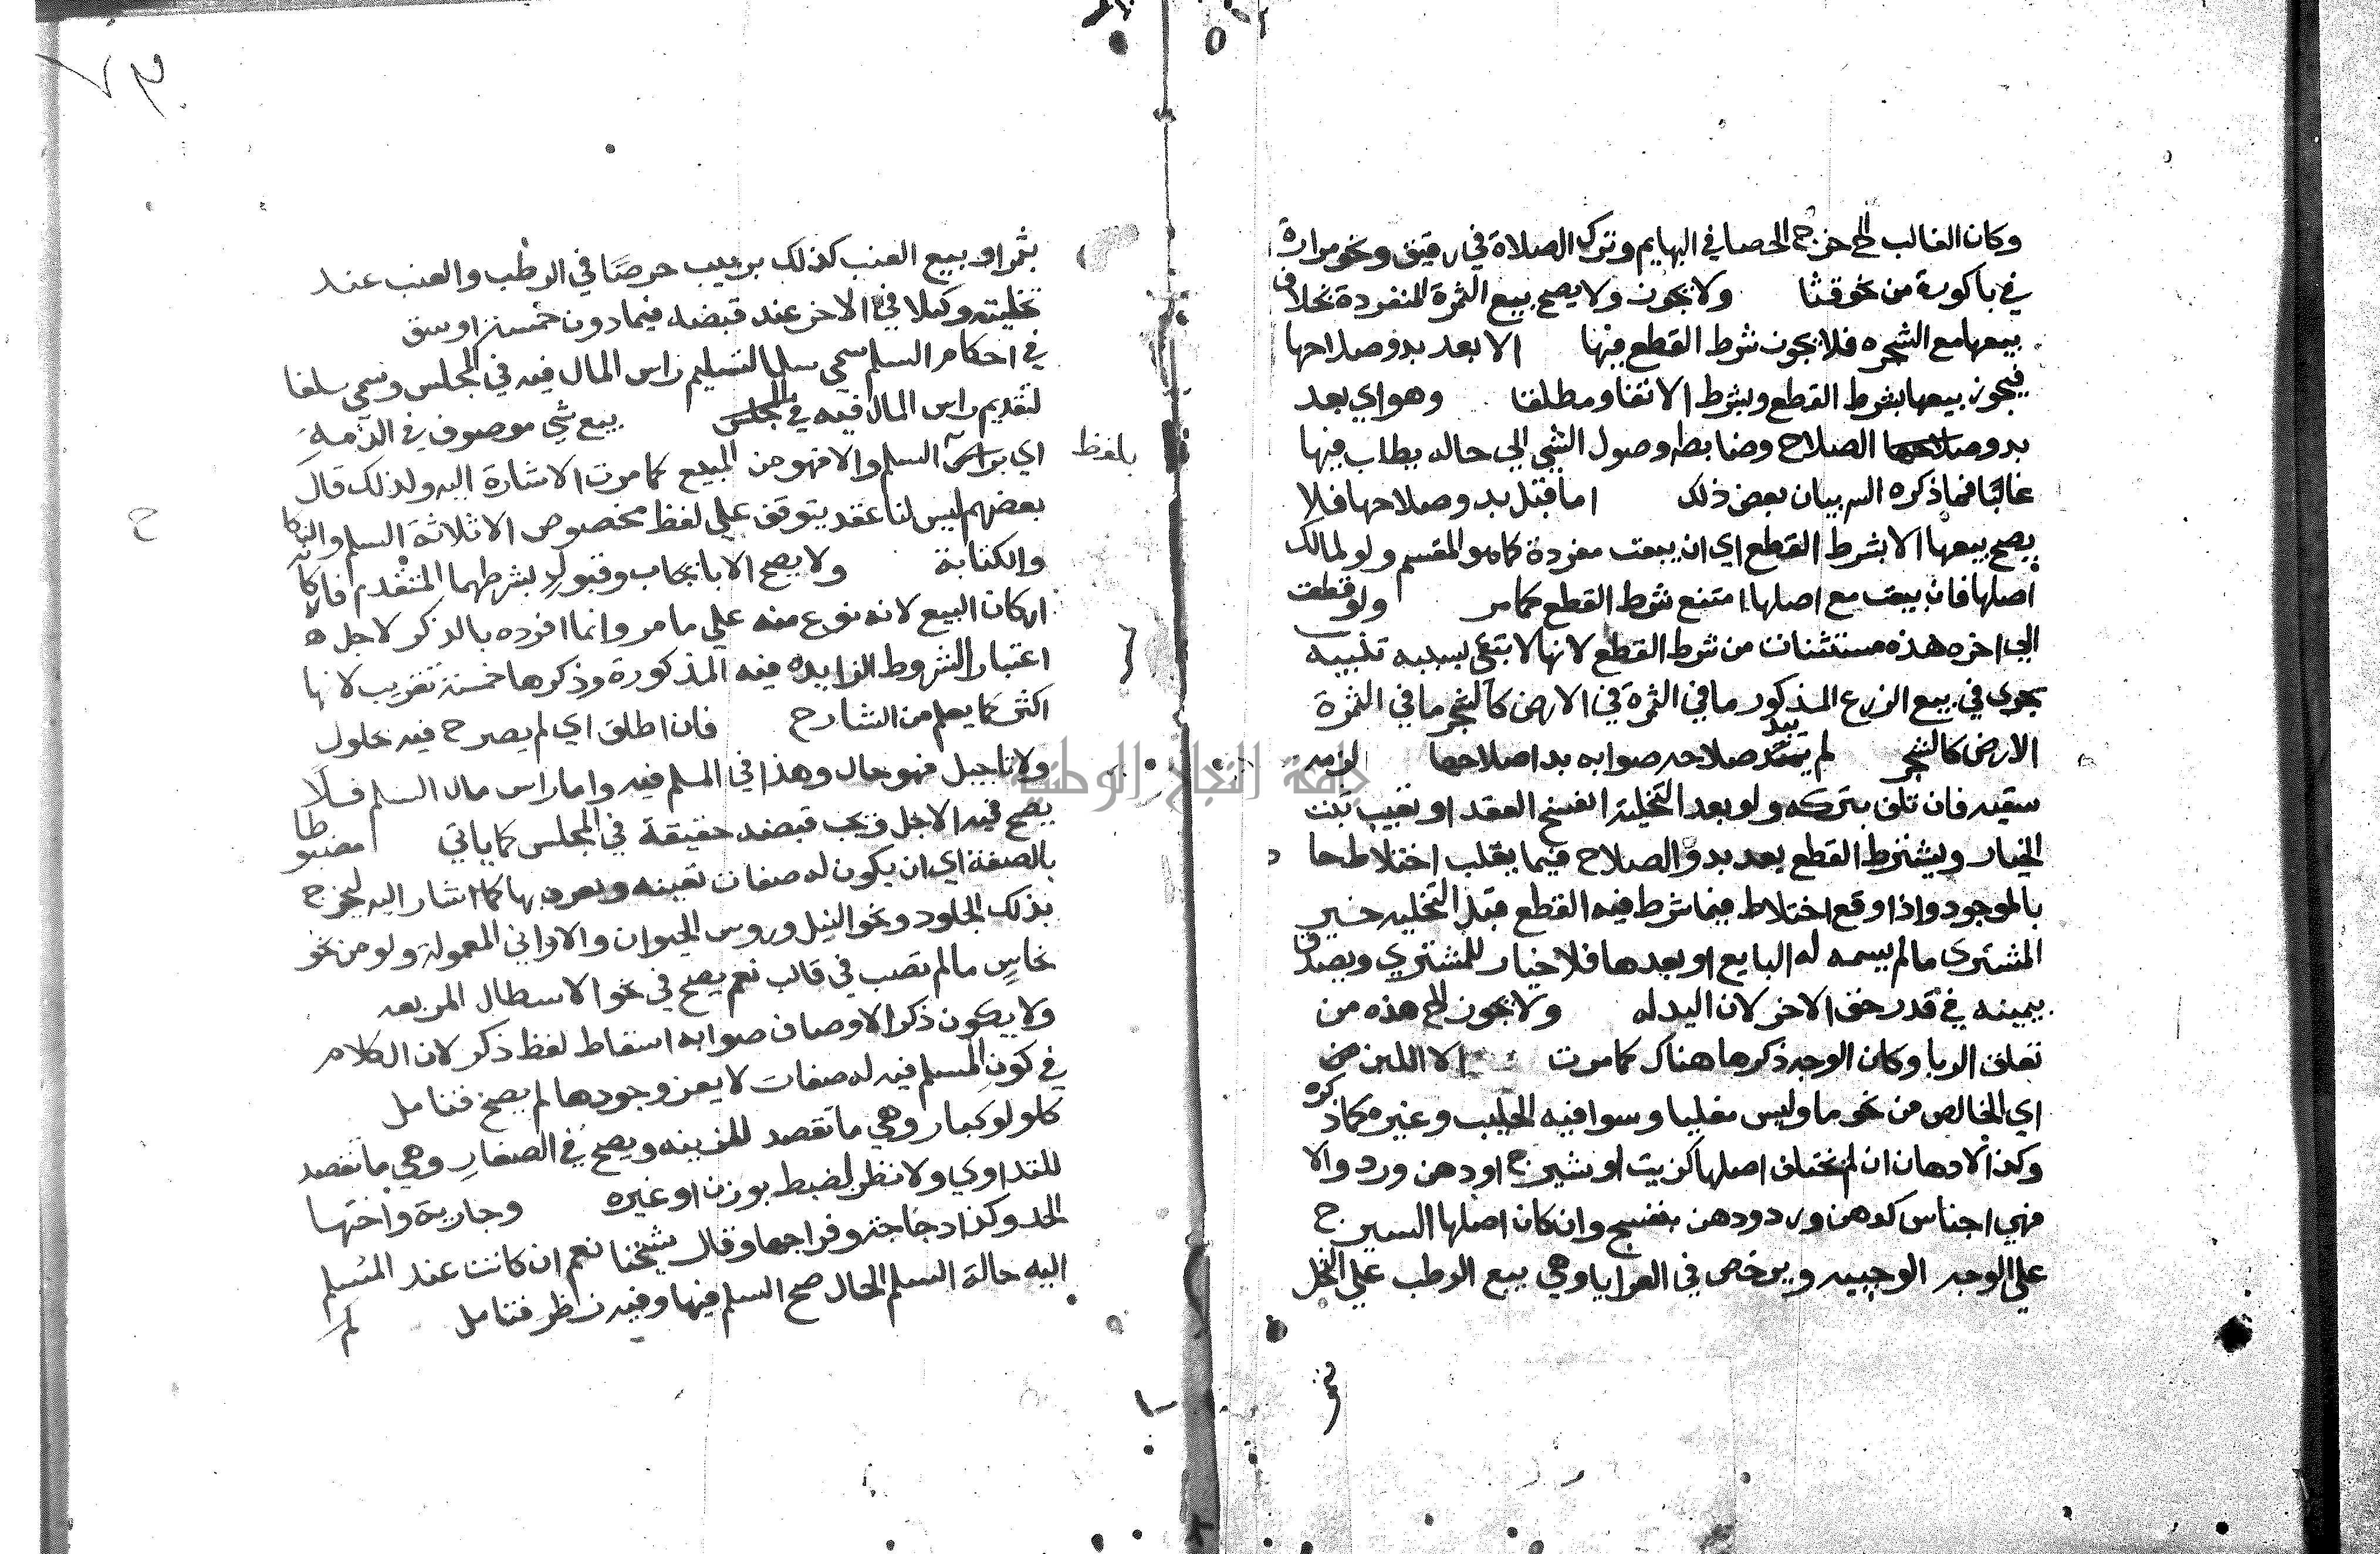 وكان الغالب الخ خرج الخصا في البهايم وترك الصلاة في رقيق ونحو مرارة
في باكورة من نحو قثا ولا يجوز ولا يصح بيع الثمرة المنفردة بخلاف
بيعها مع الشجره فلا يجوز شرط القطع فيها الا بعد بدو صلاحها
فيجوز بيعها بشرط القطع وبشرط الابقا ومطلقا وهو اي بعد
بدو الصلاح وضابطه وصول الشي الي حاله يطلب فيها
غالبا فما ذكره الس بيان بعض ذلك اما قبل بدو صلاحها فلا
يصح بيعها الا بشرط القطع اي ان بيعت مفردة كما هو المقسم ولو لمالك
اصلها فان بيعت مع اصلها امتنع شرط القطع كما مر ولو قطعت
الي اخره هذه مستثنات من شرط القطع لانها لا تبقي بسببه تنبيه
يجري في بيع الزرع المذكور ما في الثمرة في الارض كالشجر ما في الثمرة
الارض كالشجر لم يبد صلاحه صوابه بدا صلاحها لزمه
سقيه فان تلف بتركه ولو بعد التخلية انفسخ العقد او تعيب ثبت
الخيار ويشترط القطع بعد بدو الصلاح فيما يغلب اختلاطها
بالموجود واذا وقع اختلاط فيما شرط فيه القطع قبل التخليه خير
المشتري ما لم يسمه له البايع او بعدها فلا خيار للمشتري ويصدق
بيمينه في قدر حق الاخر لان اليد له ولا يجوز الخ هذه من
تعلق الربا وكان الوجه ذكرها هناك كما مرت الا اللبن
اي الخالص من نحو ما وليس مغليا وسوا فيه الحليب وغيره كما ذكره
وكذا الادهان ان لم تختلف اصلها كزيت او شيرج او دهن ورد والا
فهي اجناس كدهن ورد ودهن بنفسج وان كان اصلها السيرج
علي الوجه الوجيه ويرخص في العرايا وهي بيع الرطب علي النخل
بثمر او بيع العنب كذلك بزبيب خرصا في الرطب والعنب عند
تخليته وكيلا في الاخر عند قبضه فيما دون خمسة اوسق
في احكام السلم سمي سلما لتسليم راس المال فيه في المجلس وسمي سلفا
لتقديم راس المال فيه في المجلس بيع شي موصوف في الذمة
بلفظ
اي السلم والا فهو من المبيع كما مرت الاشارة اليه ولذلك قال
بعضهم ليس لنا عقد يتوقف علي لفظ مخصوص الا ثلاثة السلم والنكا
والكتابة ولا يصح الا بايجاب وقبول بشرطهما المتقدم
اركان البيع لانه نوع منه علي ما مر وانما افرده بالذكر لاجل
اعتبار الشروط الزايده فيه المذكورة وذكرها خمسة تقريب لانها
اكثر كما يعلم من الشارح فان اطلق اي لم يصرح فيه بحلول
ولا تاجيل فهو حال وهذا في المسلم فيه واما راس مال السلم فلا
يصح فيه الاجل ويجب قبضه حقيقة في المجلس كما ياتي مضبوطا
بالصفة اي ان يكون له صفات تعينه ويعرف بها كما اشار اليه ليخرج
بذلك الجلود ونحو النبل وروس الحيوان والاواني المعمولة ولو من نحو
نحاس ما لم تصب في قالب نعم يصح في نحو الاسطال المربعه
ولا يكون ذكر الاوصاف صوابه اسقاط لفظ ذكر لان الكلام
في كون المسلم فيه له صفات لا يعز وجودها لم يصح فتامل
كلولو كبار وهي ما تقصد للزينه ويصح في الصغار وهي ما تقصد
للتداوي ولا نظر لضبط بوزن او غيره وجارية واختها
الخ وكذا دجاجة وفراخها وقال شيخنا نعم ان كانت عند المسلم
اليه حالة السلم الحال صح السلم فيها وفيه نظر فتامل لم
جامعة النجاح الوطنية